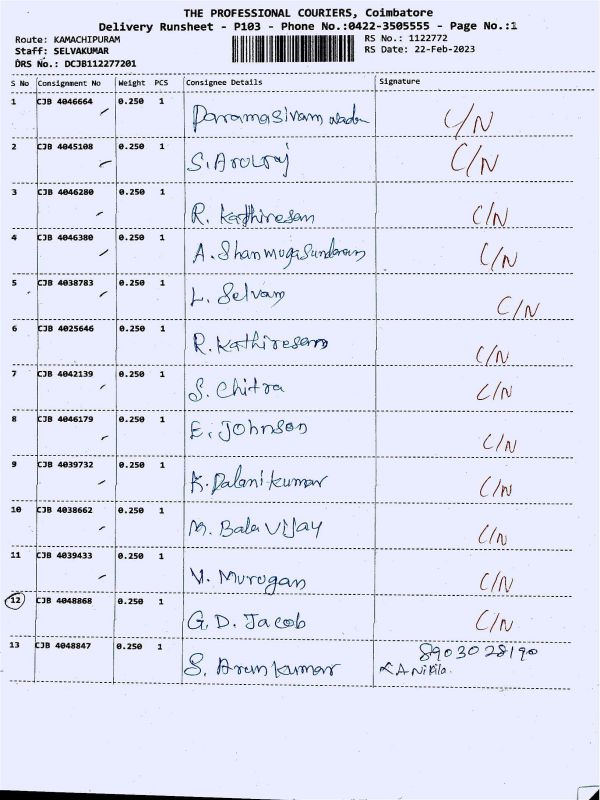 THE PROFESSIONAL COURIERS, Coimbatore
Delivery Runsheet - P103 - Phone No.:0422-3505555 - Page No.:1
Route: KAMACHIPURAM RS No.: 1122772
Staff: SELVAKUMAR RS Date: 22-Feb-2023
DRS No.: DCJB112277201
S No Consignment No Weight PCS Consignee Details Signature
1 CJB 4046664 0.250 1 Paramasivam C/N
2 CJB 4045108 0.250 1 S. Arulraj C/N
3 CJB 4046280 0.250 1 R. Kathiresan C/N
4 CJB 4046380 0.250 1 A. Shanmugasundaram C/N
5 CJB 4038783 0.250 1 L. Selvam C/N
6 CJB 4025646 0.250 1 R. Kathiresan C/N
7 CJB 4042139 0.250 1 S. Chitra C/N
8 CJB 4046179 0.250 1 E. Johnson C/N
9 CJB 4039732 0.250 1 K. Palanikumar C/N
10 CJB 4038662 0.250 1 M. Bala Vijay C/N
11 CJB 4039433 0.250 1 V. Murugan C/N
12 CJB 4048868 0.250 1 G.D. Jacob C/N
13 CJB 4048847 0.250 1 S. Arunkumar 8903028190